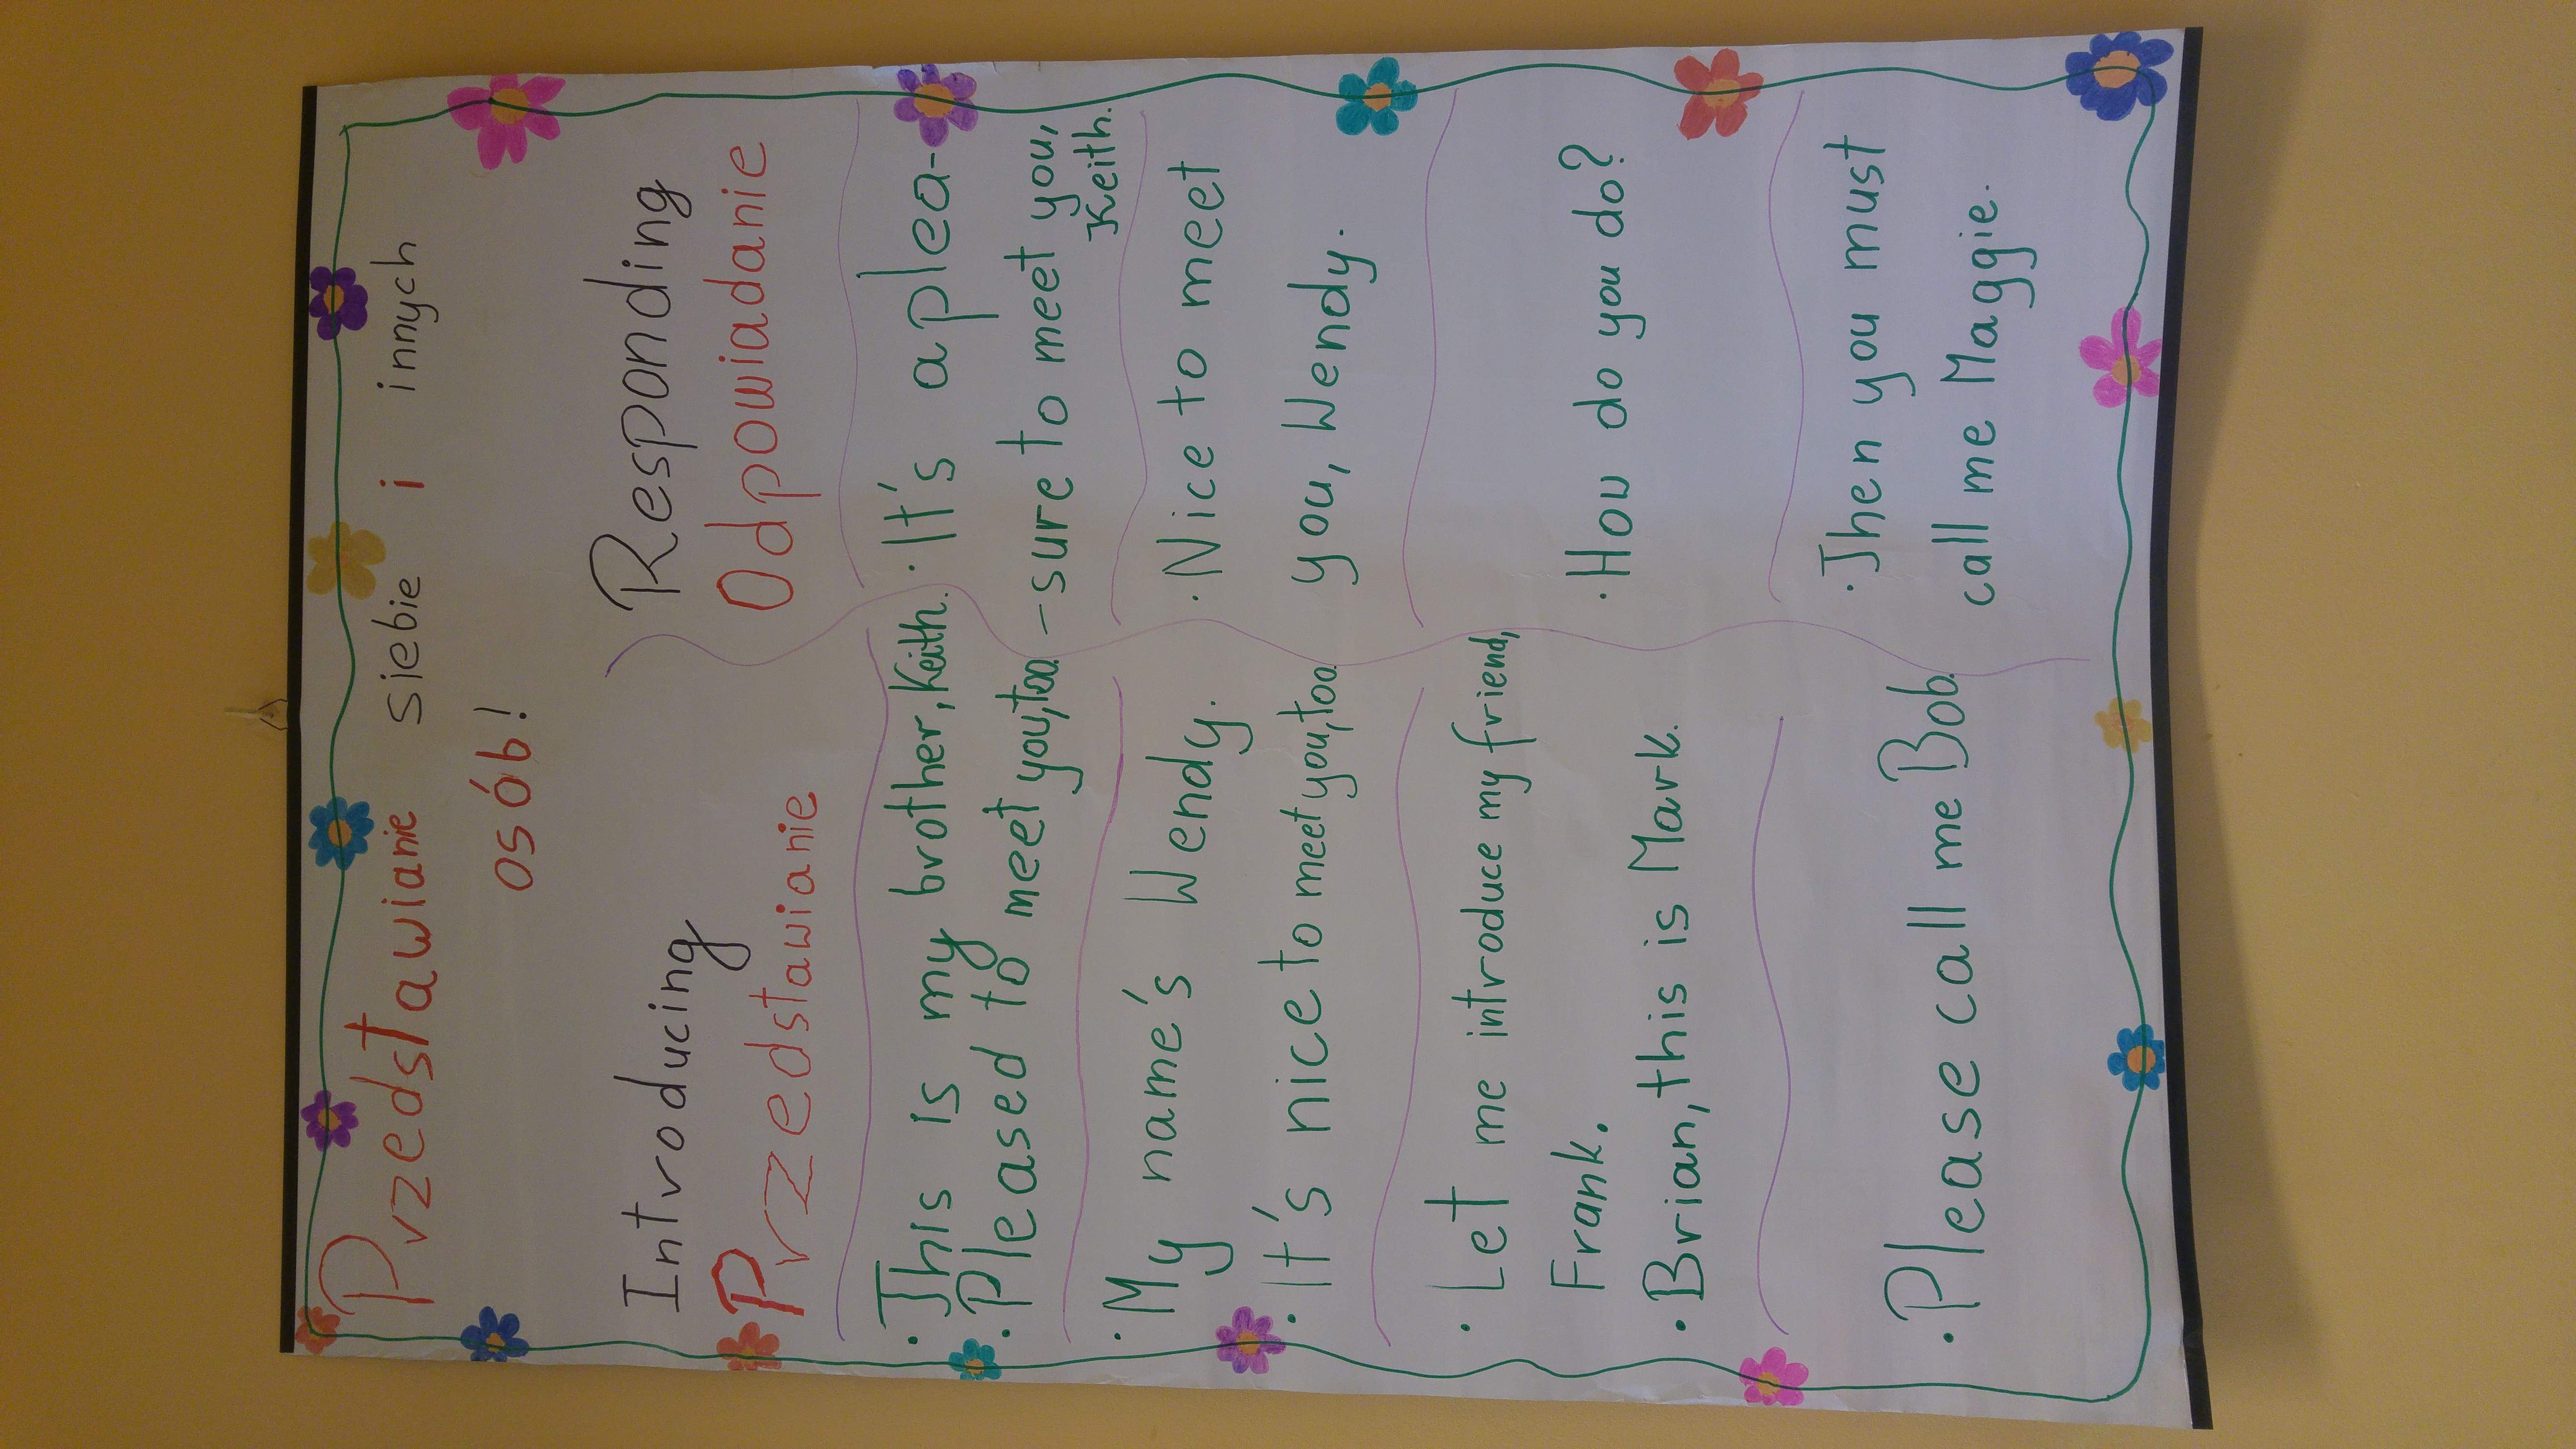 Przedstawianie siebie i innych
osób!
Introducing
Przedstawianie
Responding
Odpowiadanie
· This is my brother, Keith.
· Pleased to meet you, too.
· It's a plea-
-sure to meet you,
Keith.
· My name's Wendy.
· It's nice to meet you, too.
· Nice to meet
you, Wendy.
· Let me introduce my friend,
Frank.
· Brian, this is Mark.
· How do you do?
· Please call me Bob.
· Then you must
call me Maggie.